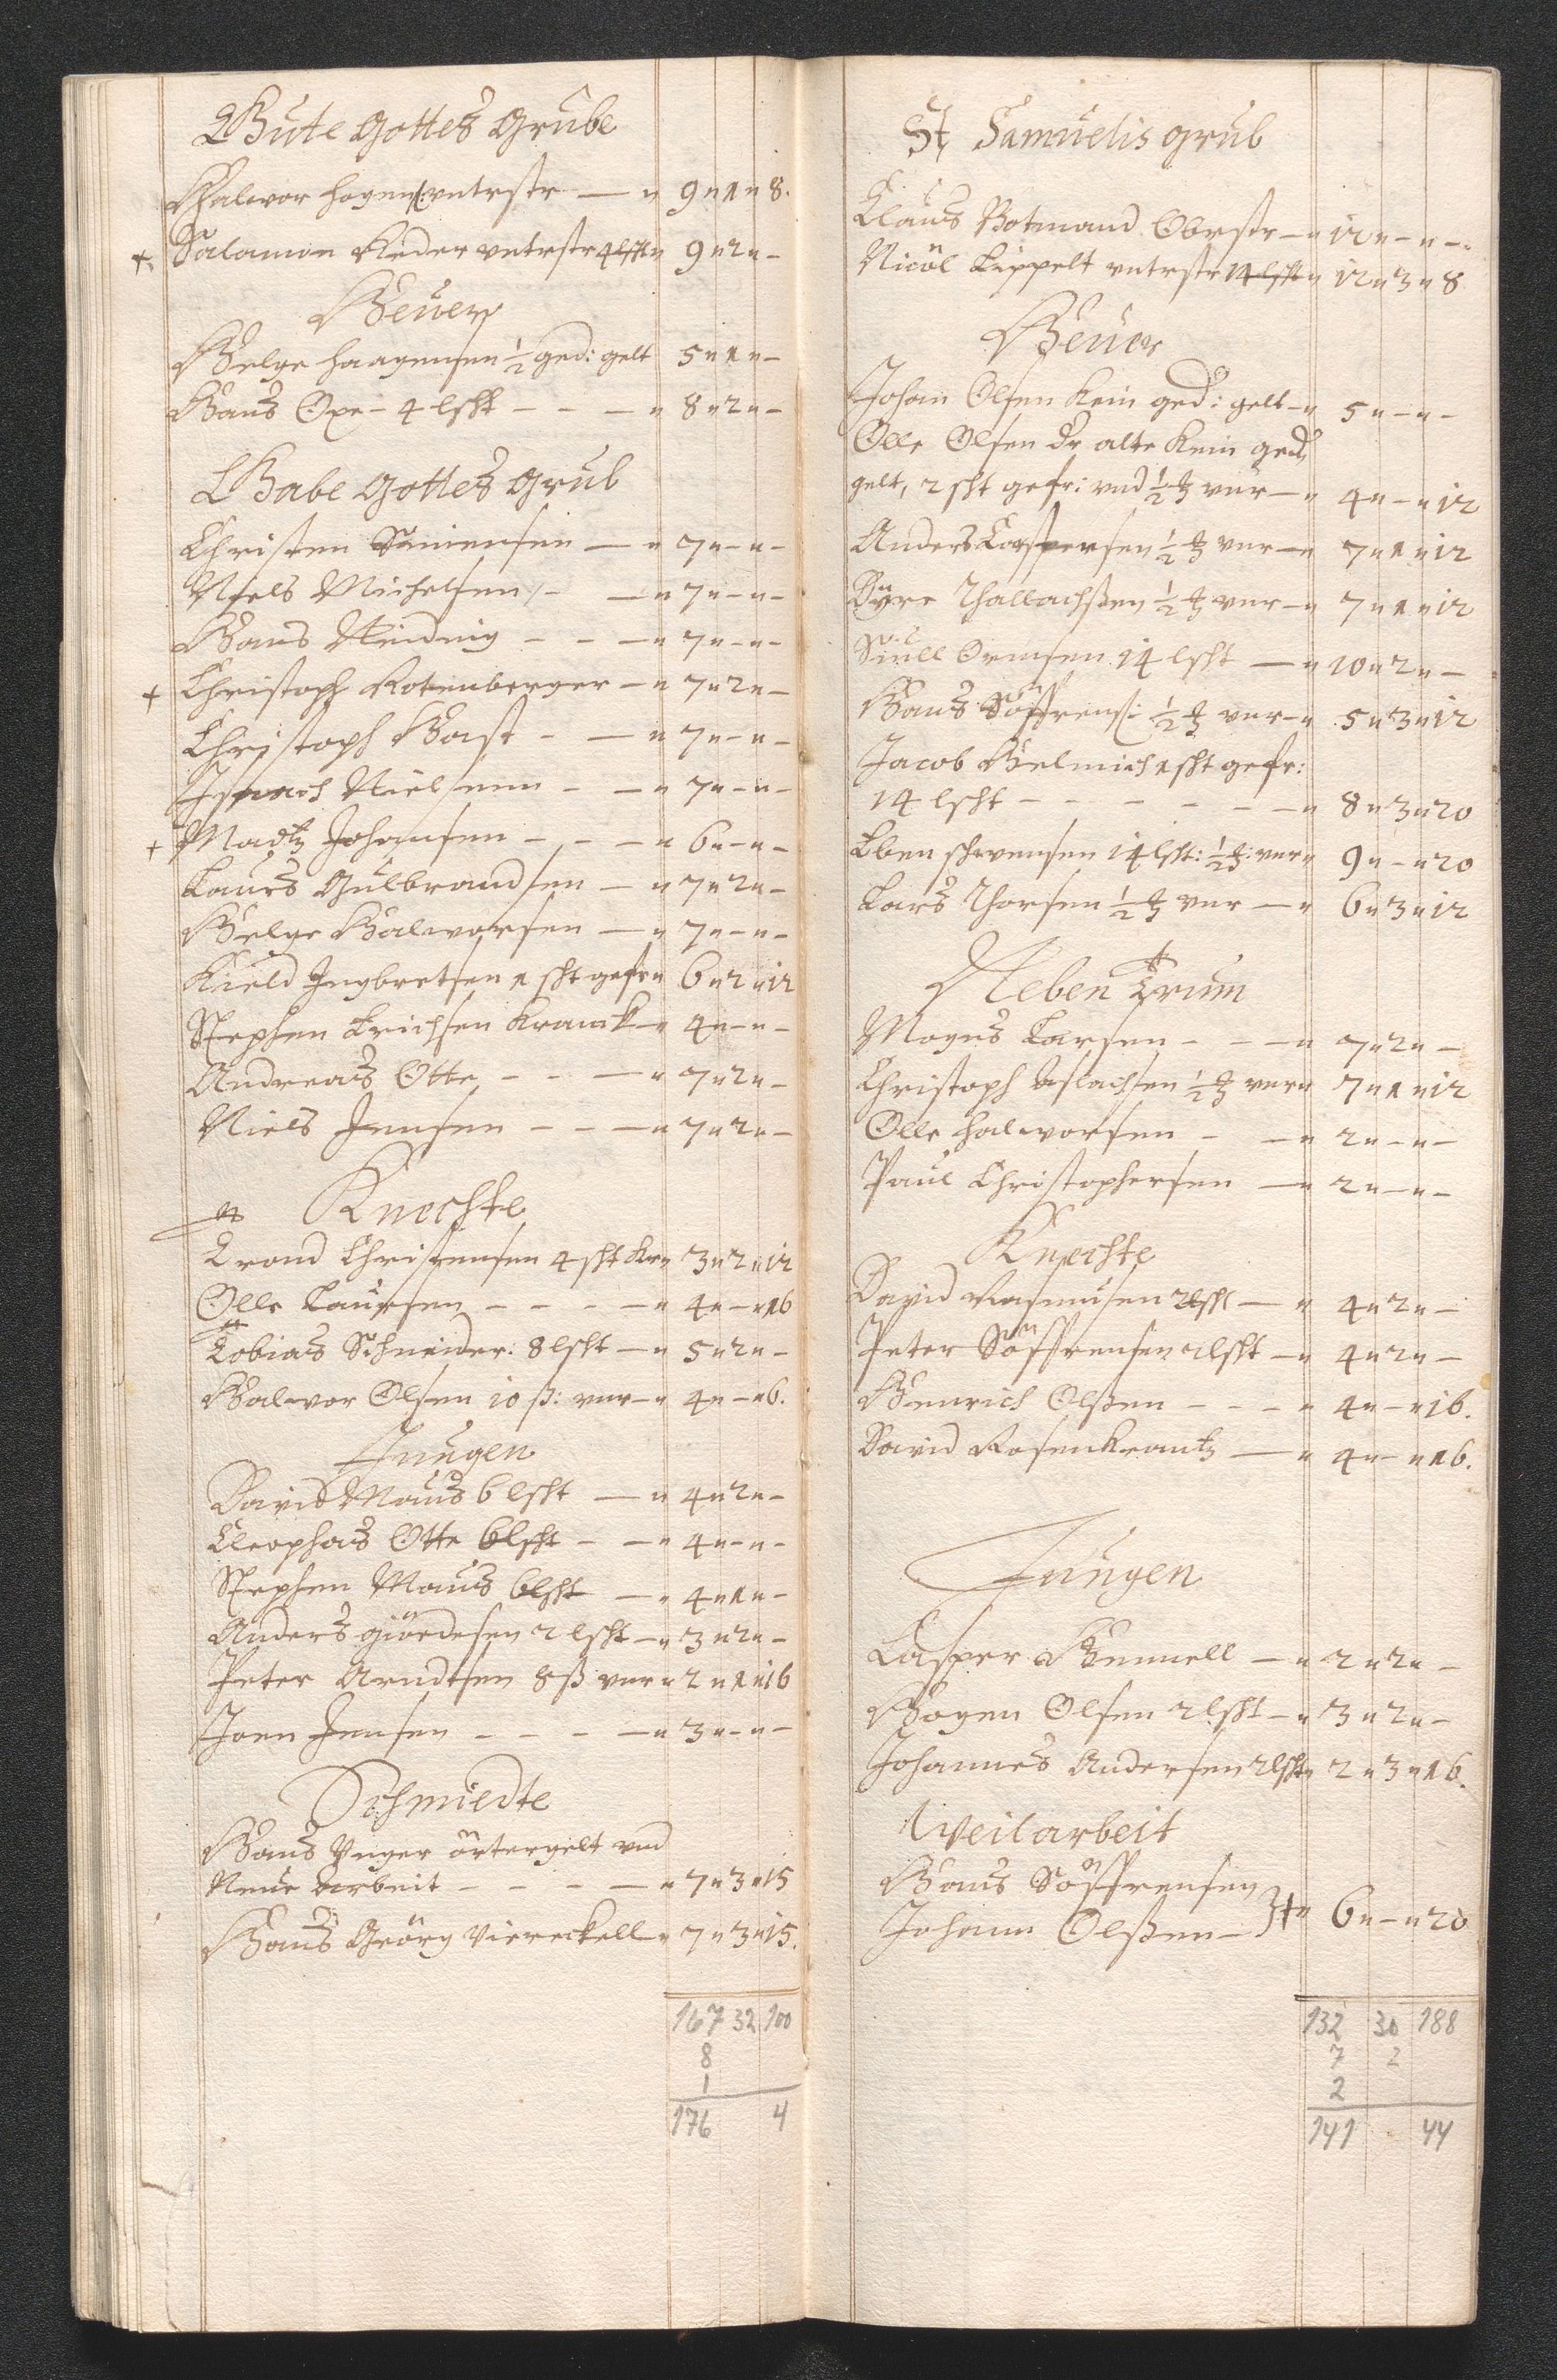 Gute Gottes Grube
Halvor Hagens: untrstr — „ 9 „ 1 „ 8.
+ Salamon Reder untrstr 4 lscht „ 9 „ 2 „ -
Heuer
Helge Haagensen ½ ged: gelt 5 „ 1 „ -
Hans Oxe - 4 lscht - - - „ 8 „ 2 „ -
Gabe Gottes Grub
Christen Simensen — „ 7 „ - „ -
Niels Michelsen - — „ 7 „ - „ -
Hans - - — „ 7 „ - „ -
+ Christoph Rotenberger — „ 7 „ 2 „ -
Christoph Hast - — „ 7 „ - „ -
Nielsenn - — „ 7 „ - „ -
+ Madtz Johansen - - — „ 6 „ - „ -
Laurs Gulbrandsen — „ 7 „ 2 „ -
Helge Halvorsen — „ 7 „ - „ -
Kield Ingbretsen 1 scht gefr „ 6 „ 2 „ 12
Stephen Erichsen Kranck — „ 4 „ - „ -
Andreas Otte - - — „ 7 „ 2 „ -
Niels Jensen - - — „ 7 „ 2 „ -
Knechte
Trond Christensen 4 scht Kr „ 3 „ 2 „ 12
Olle Laursen - - - — „ 4 „ - „ 16
Tobias Schneider: 8 lscht — „ 5 „ 2 „ -
Halvor Olsen 10 ß: vnr — „ 4 „ - „ 6.
Jungen
David Maus 6 lscht — „ 4 „ 2 „ -
Cleophas Otte 6 lscht - — „ 4 „ - „ -
Stephen Maus 6 lscht — „ 4 „ 1 „ -
Anders giördesen 2 lscht — „ 3 „ 2 „ -
Peter Arndtsen 8 ß vnr „ 2 „ 1 „ 16
Joen Jensen - - - — „ 3 „ - „ -
Schmiedte
Hans Unger örtergelt und
Neue Arbeit - - - — „ 7 „ 3 „ 15
Hans Georg Viereckell — „ 7 „ 3 „ 15.
167 32 100
8
1
176 4
St Samuelis grub
Claus Botmand Obrstr — „ 12 „ - „ -
Nicöl Lippelt untrstr 14 lscht „ 12 „ 3 „ 8
Heuer
Johan Olsen Kein ged: gelt — „ 5 „ - „ -
Olle Olsen dr alte Kein ged
gelt, 2 scht gefr: und ½ vnr — „ 4 „ - „ 12
Anders Caspersen ½ vnr — „ 7 „ 1 „ 12
Thallachssen ½ vnr — „ 7 „ 1 „ 12
Siull Ormsen 14 lscht — „ 10 „ 2 „ -
Hans Söffrens: ½ vnr — „ 5 „ 3 „ 12
Jacob Helmich 1 scht gefr:
14 lscht - - - - - — „ 8 „ 3 „ 20
Eben 14 lscht: ½: vnr „ 9 „ - „ 20
Lars Thorsen ½ vnr — „ 6 „ 3 „ 12
Neben Trum
Mogns Larsen - - — „ 7 „ 2 „ -
Christoph Aslachsen ½ vnr „ 7 „ 1 „ 12
Olle Halvorsen - — „ 2 „ - „ -
Paul Christophersen — „ 2 „ - „ -
Knechte
David Rasmusen 2 lscht — „ 4 „ 2 „ -
Peter Söffrensen 2 lscht — „ 4 „ 2 „ -
Henrich Olssen - - - „ 4 „ - „ 16.
David Rosenkrantz — „ 4 „ - „ 16.
Jungen
Casper Hennell — „ 2 „ 2 „ -
Hagen Olsen 2 lscht — „ 3 „ 2 „ -
Johannes Andersen 2 lscht „ 2 „ 3 „ 16.
Weilarbeit
Hans Söffrensen
Johann Olssen — „ 6 „ - „ 20
132 30 188
7 2
2
141 44